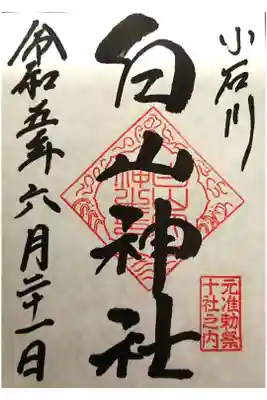 小石川
白山神社
元准勅祭
十社之内
令和五年六月二十一日